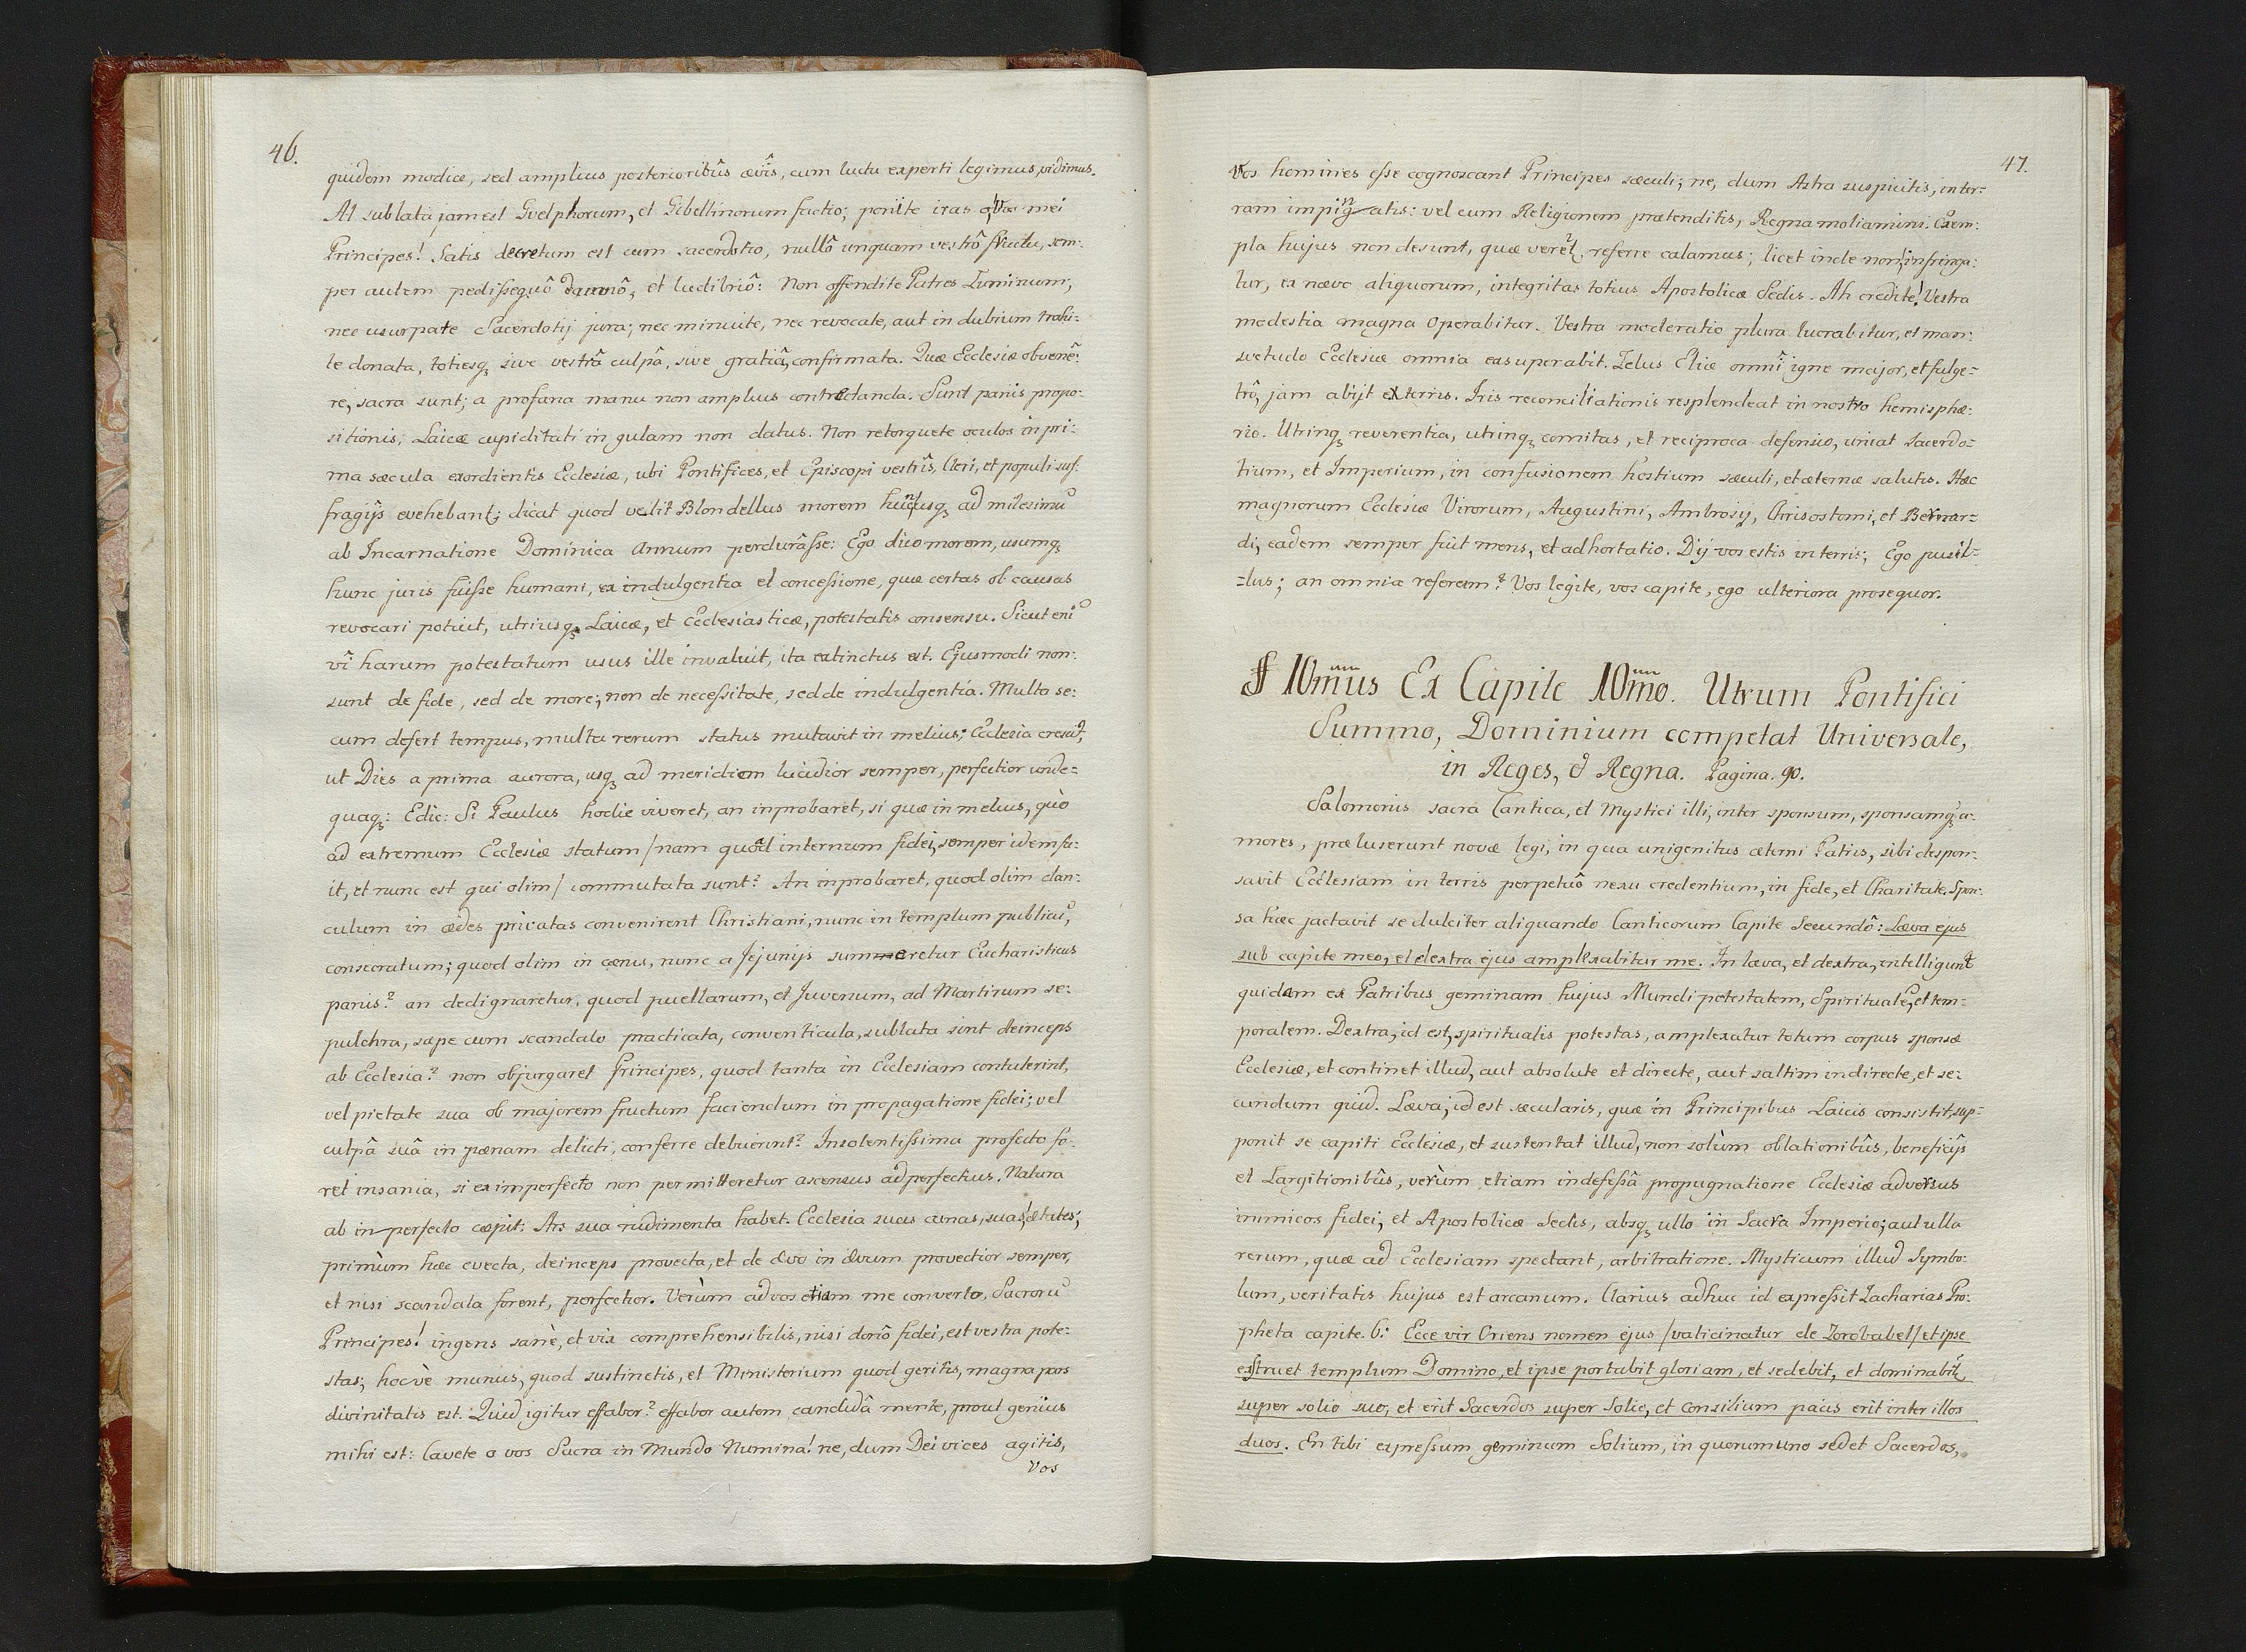 46.
quidem modice, sed amplius posterioribûs ævîs, cum luctu experti legimus, vidimus.
At sublata jam est Gvelphorum, et Gibellinorum factio; ponite iras o Vos mei
Principes! Satis decretum est cum sacerdotio, nullô unquam vestrô fructu, sem-
per autem pedissequô damnô, et ludibriô: Non offendite Patres Luminum,
nec usurpate Sacerdotij jura; nec minuite, nec revocate, aut in dubium trahi-
te donata, totiesq; sive vestrâ culpâ, sive gratiâ, confirmata. Quæ Ecclesiæ obvenê-
re, sacra sunt; a profana manu non amplius contrectanda. Sunt panis propo-
sitionis, Laicæ cupiditati in gulam non datus. Non retorquete oculos in pri-
ma sæcula exordientis Ecclesiæ, ubi Pontifices, et Episcopi vestrîs, Cleri, et populi suf-
fragijs evehebant; dicat quod velit Blondellus morem hunc usq; ad milesimũ
ab Incarnatione Dominica Annum perdurâsse: Ego dico morem, usumq;
hunc juris fuisse humani, ex indulgentia et concessione, quæ certas ob causas
revocari potuit, utriusq; Laicæ, et Ecclesiasticæ, potestatis consensu. Sicut enĩ
vî harum potestatum usus ille invaluit, ita extinctus est. Ejusmodi non-
sunt de fide, sed de more; non de necessitate, sed de indulgentia. Multa se-
cum defert tempus, multa rerum status mutavit in melius; Ecclesia crescit,
ut Dies a prima aurora, usq; ad meridiem lucidior semper, perfectior unde-
quaq;: Edic: Si Paulus hodie viveret, an inprobaret, si quæ in melius, quò
ad extremum Ecclesiæ statum /nam quoad internum fidei, semper idem fu-
it, et nunc est qui olim/ commutata sunt? An inprobaret, quod olim clan-
culum in ædes privatas convenirent Christiani, nunc in templum publicũ,
consecratum; quod olim in cænis, nunc a Jejunijs summeretur Eucharisticus
panis? an dedignaretur, quod puellarum, et Juvenum, ad Martirum se-
pulchra, sæpe cum scandalo practicata, conventicula, sublata sint deinceps
ab Ecclesia? non objurgaret Principes, quod tanta in Ecclesiam contulerint,
vel pietate sua ob majorem fructum faciendum in propagatione fidei; vel
culpâ suâ in pænam delicti, conferre debuerint? Insolentissima profecto fo-
ret insania, si ex imperfecto non permitteretur ascensus ad perfectius. Natura
ab in-perfecto cæpit: Ars sua rudimenta habet. Ecclesia suas cunas, suas ætates;
primùm hæc evecta, deinceps provecta, et de ævo in ævum provectior semper,
et nisi scandala forent, perfectior. Verùm ad vos etiam me converto, Sacrorũ
Principes! ingens sanè, et vix comprehensibilis, nisi donô fidei, est vestra pote-
stas; hocvè munus, quod sustinetis, et Ministerium quod geritis, magna pars
divinitatis est. Quid igitur effabor? effabor autem candidâ mente, prout genius
mihi est: Cavete o vos Sacra in Mundo Numina! ne, dum Dei vices agitis,
Vos
47.
Vos homines esse cognoscant Principes sæculi; ne, dum Astra suspicitis, in ter-
ram impingatis: vel cum Religionem prætenditis, Regna moliamini. Exem-
pla hujus non desunt, quæ veretur referre calamus; licet inde non infringa-
tur, ex nævo aliquorum, integritas totius Apostolicæ Sedis. Ah credite! Vestra
modestia magna Operabitur. Vestra moderatio plura lucrabitur, et man-
svetudo Ecclesiæ omnia exsuperabit. Zelus Eliæ omnî igne major, et fulge-
trô, jam abijt ex terris. Iris reconciliationis resplendeat in nostro hemisphæ-
rio. Utrinq; reverentia, utrinq; comitas, et reciproca defensio, uniat Sacerdo-
tium, et Imperium, in confusionem hostium sæculi, et æternæ salutis. Hæc
magnorum Ecclesiæ Virorum, Augustini, Ambrosij, Chrisostomi, et Bernar-
di, eadem semper fuit mens, et adhortatio. Dij vos estis in terris; Ego pusil-
-lus; an omnia referam? Vos legite, vos capite, ego ulteriora prosequor.
§ 10mus Ex Capite 10mo. Utrum Pontifici
Summo, Dominium competat Universale,
in Reges, & Regna. Pagina. 90.
Salomonis sacra Cantica, et Mystici illi, inter sponsum, sponsamq; a-
mores, præluserunt novæ legi, in qua unigenitus æterni Patris, sibi despon-
savit Ecclesiam in terris perpetuô nexu credentium, in fide, et Charitate. Spon-
sa hæc jactavit se dulciter aliquando Canticorum Capite Secundô: Læva ejus
sub capite meo, et dextra ejus amplexabitur me. In læva, et dextra, intelligunt
quidam ex Patribus geminam hujus Mundi potestatem, Spiritualẽ, et tem-
poralem. Dextra, id est, spiritualis potestas, amplexatur totum corpus sponsæ
Ecclesiæ, et continet illud, aut absolute et directe, aut saltim indirecte, et se-
cundum quid. Læva, id est sæcularis, quæ in Principibus Laicis consistit, sup-
ponit se capiti Ecclesiæ, et sustentat illud, non solùm oblationibûs, beneficijs
et Largitionibûs, verùm etiam indefessâ propugnatione Ecclesiæ adversus
inimicos fidei, et Apostolicæ Sedis, absq; ullo in Sacra Imperio; aut ulla
rerum, quæ ad Ecclesiam spectant, arbitratione. Mysticum illud Symbo-
lum, veritatis hujus est arcanum. Clarius adhuc id expressit Zacharias Pro-
pheta capite. 6: Ecce vir Oriens nomen ejus /vaticinatur de Zorobabel/ et ipse
exstruet templum Domino, et ipse portabit gloriam, et sedebit, et dominabit͛
super solio suo, et erit Sacerdos super Solio, et Consilium pacis erit inter illos
duos. En tibi expressum geminum Solium, in quorum uno sedet Sacerdos,